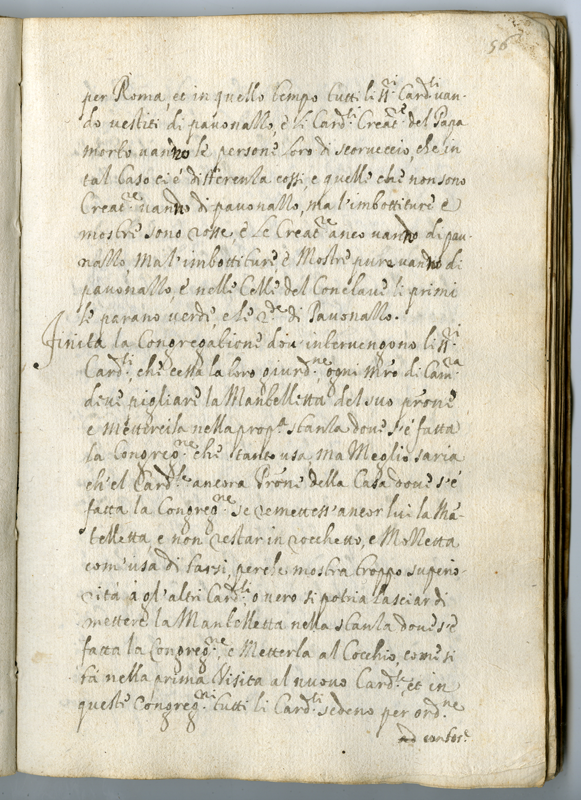 56
per Roma, et in quello tempo tutti li SS.ri Card.li van-
do vestiti di pauonazzo, è li Card.li Creat.re del Papa
morto vanno le persone loro di scoruccio, che in
tal Caso ci é differenza cossi, e quelle che non sono
Creat.re vanno di pauonazzo, ma l'imbottiture e
mostre sono rosse è le Creat.re anco vanno di pau-
nazzo, ma l'imbottiture è Mostre pure vanno di
pauonazzo, è nelle Celle del Conclaue li primi
se parano verdi, e le 2.de di Pauonazzo.
Finita la Congregatione doi intervengono li SS.ri
Card.li, che cessa la loro giurd.ne, ogni Mro di Cam.ra
deue pigliare la Mantelletta del suo prone
e mettercila nella prop.a stanza doue s'é fatta
la Congreg.ne che tanto usa, ma Meglio saria
ch'el Card.le ancora Prone della Casa doue s'é
fatta la Congreg.ne se remetess' ancor lui la Mã-
telletta e non restar in rocchetto, e Mozzetta
com'usa di farsi, perche mostra troppo superio-
rità à gl'altri Card.li, o uero si potria lasciar di
mettere la Mantelletta nella stanza doue s'é
fatta la Congreg.ne, e Metterla al Cocchio, come si
fà nella prima Visita al nuouo Card.le, et in
queste Congreg.ni tutti li Card.li sedeno per ord.ne